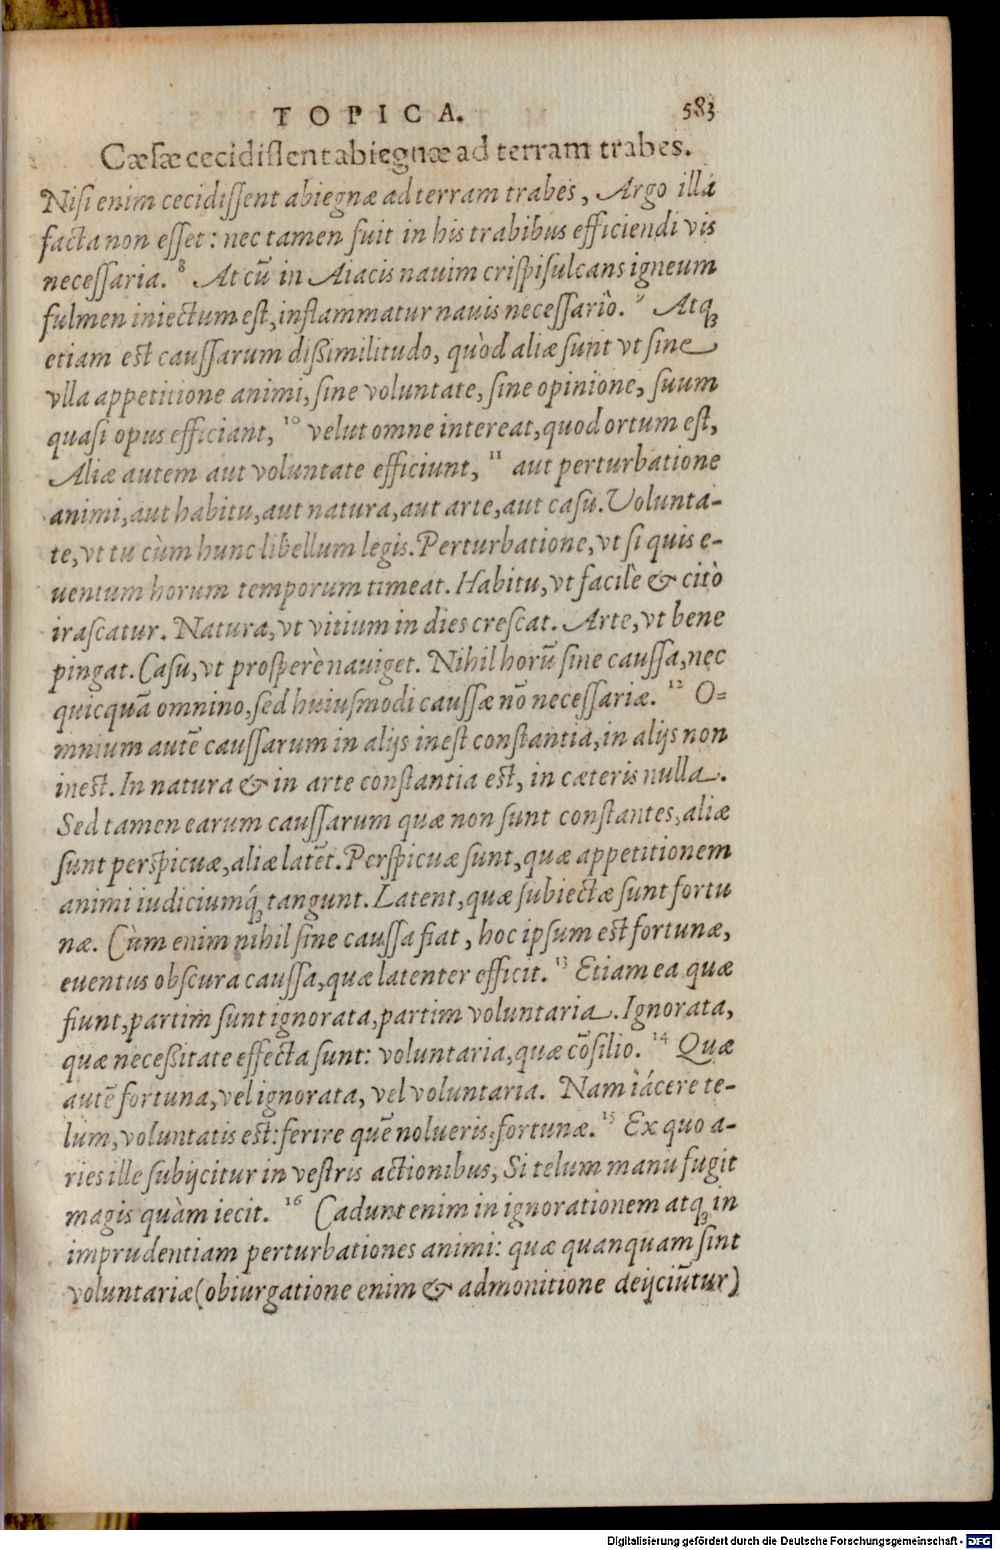 TOPICA. 583
Cæſæ cecidiſſent abiegnæ ad terram trabes.
Niſi enim cecidiſſent abiegnæ ad terram trabes, Argo illa
facta non eſſet: nec tamen fuit in his trabibus efficiendi vis
neceſſaria. 8 At cū in Aiacis nauim criſpiſulcans igneum
fulmen iniectum eſt, inflammatur nauis neceſſariò. 9 Atqꝫ
etiam eſt cauſſarum dißimilitudo, quòd aliæ ſunt vt ſine
vlla appetitione animi, ſine voluntate, ſine opinione, ſuum
quaſi opus efficiant, 10 velut omne intereat, quod ortum eſt,
Aliæ autem aut voluntate efficiunt, 11 aut perturbatione
animi, aut habitu, aut natura, aut arte, aut caſu. Volunta-
te, vt tu cùm hunc libellum legis. Perturbatione, vt ſi quis e-
uentum horum temporum timeat. Habitu, vt facilè & citò
iraſcatur. Natura, vt vitium in dies creſcat. Arte, vt bene
pingat. Caſu, vt proſperè nauiget. Nihil horū ſine cauſſa, nec
quicquā omnino, ſed huiuſmodi cauſſæ nō neceſſariæ. 12 O=
mnium autē cauſſarum in alijs ineſt conſtantia, in alijs non
ineſt. In natura & in arte conſtantia eſt, in cæteris nulla.
Sed tamen earum cauſſarum quæ non ſunt conſtantes, aliæ
ſunt perſpicuæ, aliæ latēt. Perſpicuæ ſunt, quæ appetitionem
animi iudiciumq́ꝫ tangunt. Latent, quæ ſubiectæ ſunt fortu
næ. Cùm enim nihil ſine cauſſa fiat, hoc ipſum eſt fortunæ,
euentus obſcura cauſſa, quæ latenter efficit. 13 Etiam ea quæ
fiunt, partim ſunt ignorata, partim voluntaria. Ignorata,
quæ neceßitate effecta ſunt: voluntaria, quæ cōſilio. 14 Quæ
autē fortuna, vel ignorata, vel voluntaria. Nam iácere te-
lum, voluntatis eſt: ferire quē nolueris, fortunæ. 15 Ex quo a-
ries ille ſubijcitur in veſtris actionibus, Si telum manu fugit
magis quàm iecit. 16 Cadunt enim in ignorationem atqꝫ in
imprudentiam perturbationes animi: quæ quanquam ſint
voluntariæ (obiurgatione enim & admonitione deijciūtur)
Digitalisierung gefördert durch die Deutsche Forschungsgemeinschaft - DFG